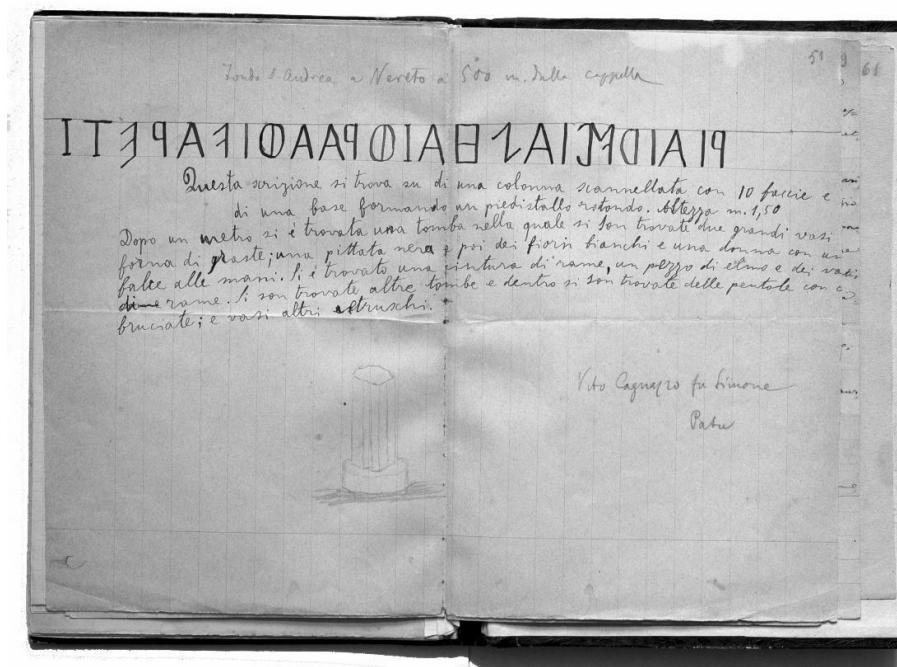 Fondo S. Andrea a Nereto a 500 m. dalla cappella
51
61
Questa scrizione si trova su di una colonna scannellata con 10 faccie e
di una base formando un piedistallo rotondo. Altezza m. 1,50
Dopo un metro si è trovata una tomba nella quale si son trovate due grandi vasi
forma di graste; una pittata nera e poi dei fiori bianchi e una donna con una
falce alle mani. Si è trovato una cintura di rame, un pezzo di elmo e dei vasi
rame. Si son trovate altre tombe e dentro si son trovate delle pentole con
bruciate; e vasi altri etruschi.
Vito Cagnazzo fu Simone
Patu